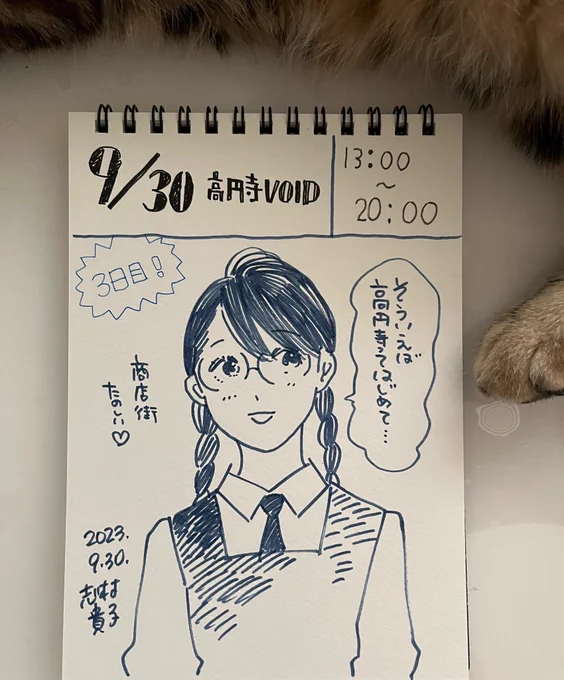 9/30 高円寺VOID
13:00
〜
20:00
3日目！
そういえば
高円寺ってはじめて…
商店街
たのしい♡
2023.
9.30.
志村
貴子